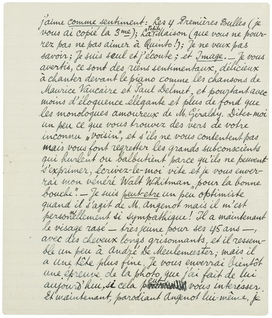 j'aime comme sentiment: Les 7 Premières Bulles (je
vous ai copié la 3me); La Maison (que vous ne pour-
rez pas ne pas aimer à Quinto!). Je ne veux pas
savoir: Je suis seul et j'écoute; et Image. — Je vous
avertis, ce sont des riens sentimentaux, délicieux
à chanter devant le piano comme les chansons de
Maurice Vaucaire et Paul Delmet, et pourtant avec
moins d'éloquence élégante et plus de fond que
les monologues amoureux de M. Géraldy. Dites-moi
un peu ce que vous trouvez des vers de votre
inconnu "voisin", et s'ils ne vous contentent pas
mais vous font regretter les grands subconscients
qui hurlent ou balbutient parce qu'ils ne peuvent
s'exprimer, écrivez-le-moi vite et je vous enver-
rai mon vénéré Walt Whitman, pour la bonne
bouche! — Je suis peut-être un peu optimiste
quand il s'agit de M. Angenot mais il m'est
personnellement si sympathique! Il a maintenant
le visage rasé — très jeune pour ses 45 ans —,
avec des cheveux longs grisonnants, et il ressem-
ble un peu à André De Meulemeester; mais il
a une tête plus fine. Je vous enverrai bientôt
une épreuve de la photo que j'ai fait de lui
aujourd'hui, si cela vous intéresser.
Et maintenant, parodiant Angenot lui-même, je